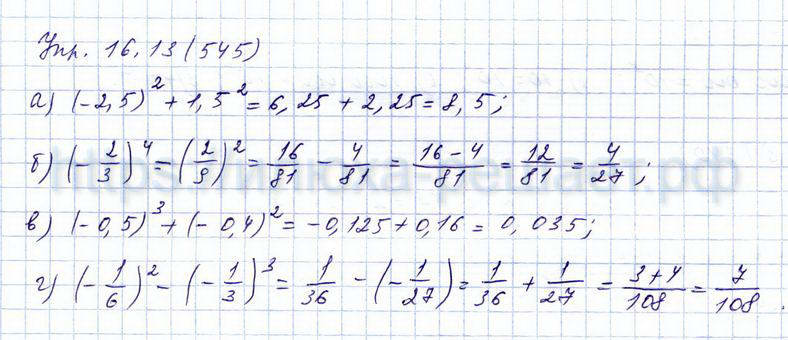 Упр. 16.13 (545)
а) (-2,5)² + 1,5² = 6,25 + 2,25 = 8,5;
б) (-2/3)⁴ - (2/9)² = 16/81 - 4/81 = (16-4)/81 = 12/81 = 4/27;
в) (-0,5)³ + (-0,4)² = -0,125 + 0,16 = 0,035;
г) (-1/6)² - (-1/3)³ = 1/36 - (-1/27) = 1/36 + 1/27 = (3+4)/108 = 7/108.